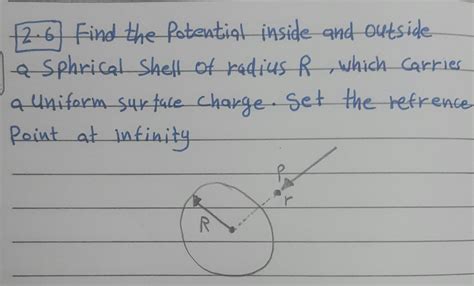 2.6 Find the Potential inside and outside
a Sphrical Shell of radius R, which Carries
a Uniform surface Charge. Set the refrence
Point at infinity
P
r
R